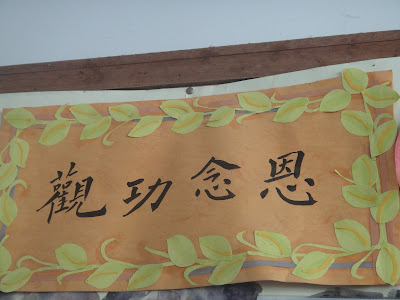 觀功念恩